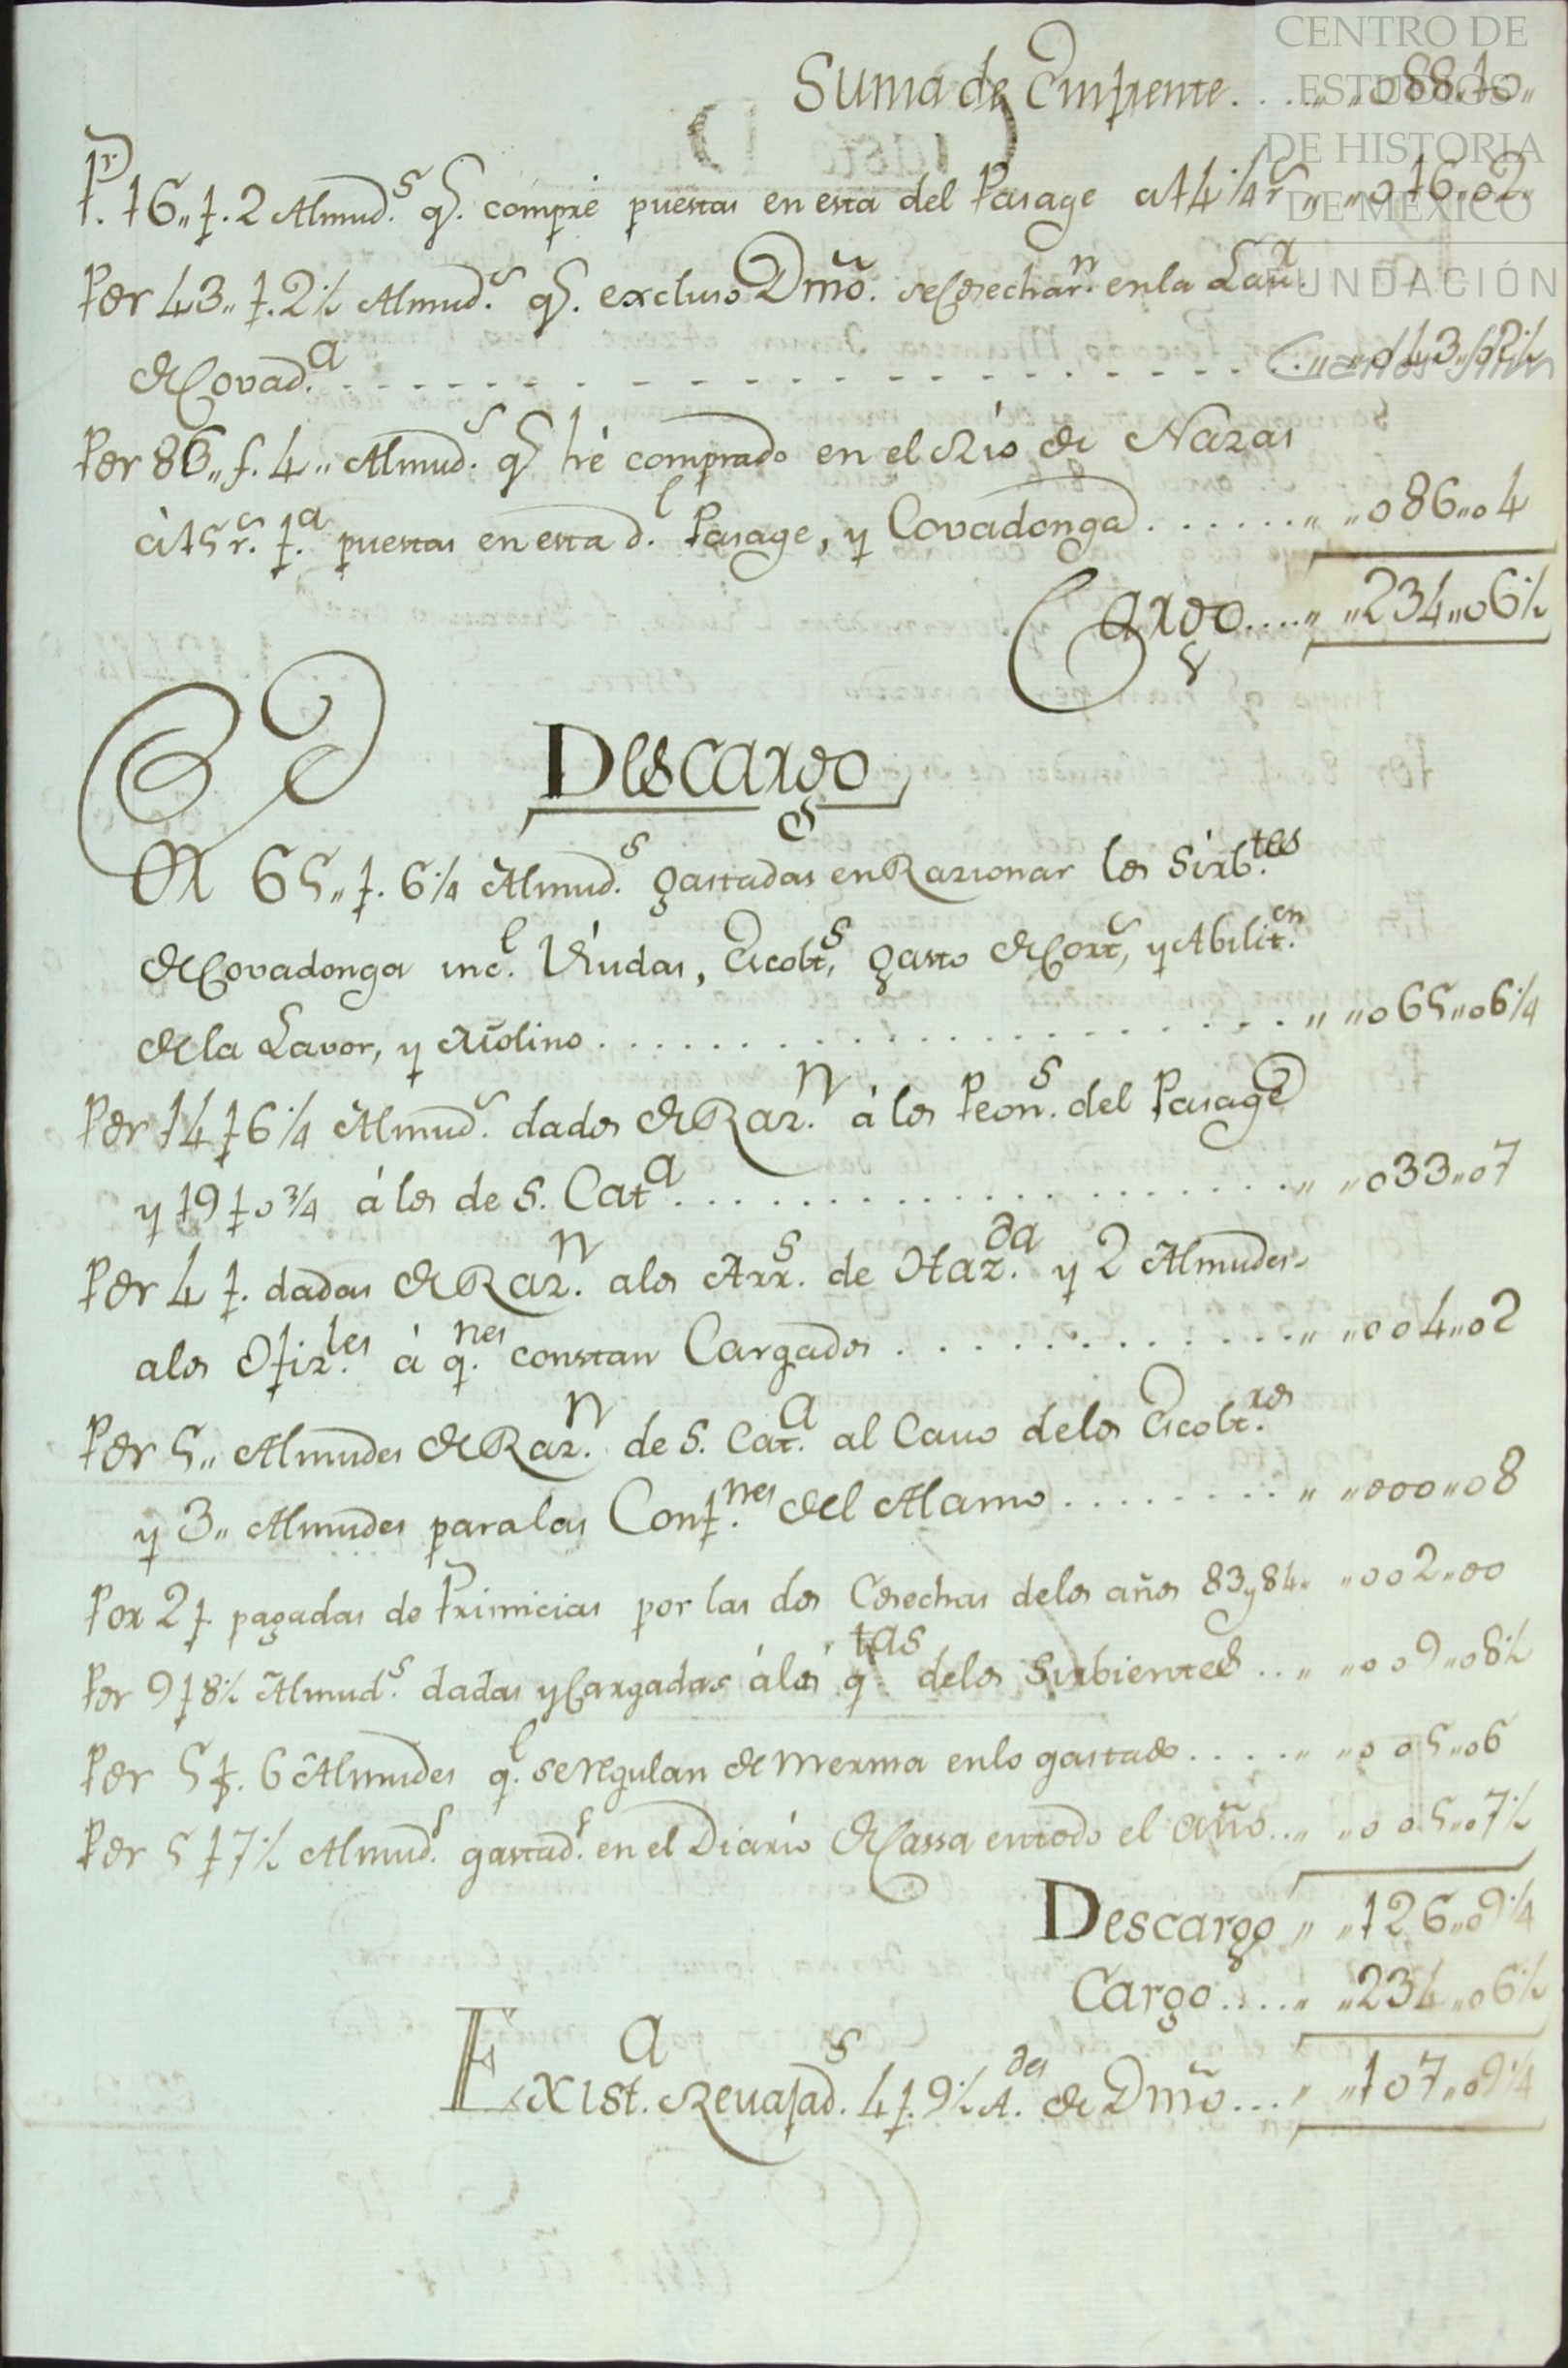 CENTRO DE
ESTUDIOS
DE HISTORIA
DE MÉXICO
FUNDACIÓN
Carlos Slim
Suma de Emfrente. . . . „ „088„10„
Pr. 16„ f. 2 Almud.s q.e compré puestas en esta del Pasage a 14 1/4 r.s „ „016„02„
Por 43„ f. 2 1/2 Almud.s q.e excluso Dmō. se Cosechar.n en la Lau.r
de Covad.a . . . . „ „043„02 1/2
Por 86„ f. 4„ Almud.s q.e hé comprado en el Rio de Nazas
à 15 r.s f.a puestas en esta d.l Pasage, y Covadonga . . . . . . „ „086„04
Cargo . . . . „ „234„06 1/2
Descargo
Por 65„ f. 6 1/4 Almud.s gastadas en Razionar los Sirb.tes
de Covadonga inc.l Viudas, Escolt.s, gasto de Cort.s, y Abilit.on
de la Lavor, y Molino . . . . „ „065„06 1/4
Por 14 f 6 1/4 Almud.s dados de Raz.n á los Peon.s del Pasage
y 19 f 0 3/4 á los de S. Cat.a . . . . „ „033„07
Por 4 f. dadas de Raz.n a los Arr.s de Haz.da y 2 Almudes
a los Ofiz.les á q.nes constan Cargados . . . . „ „004„02
Por 5„ Almudes de Raz.n de S. Cat.a al Cauo de los Escolt.ros
y 3„ Almudes para las Conf.nes del Alamo . . . . „ „000„08
Por 2 f. pagadas de Primicias por las dos Cosechas de los años 83 y 84„ „002„00
Por 9 f 8 1/2 Almud.s dadas y Cargadas á las q.tas de los Sirbientes . . „ „009„08 1/2
Por 5 f. 6 Almudes q.l se regulan de merma en lo gastado . . . . „ „005„06
Por 5 f 7 1/2 Almud.s gastad.s en el Diario de Cassa en todo el año . . „ „005„07 1/2
Descargo „ „126„09 1/4
Cargo . . . . „ „234„06 1/2
Exist.a Reuajad.s 4 f. 9 1/2 A.des de Dmō . . . „ „107„09 1/4